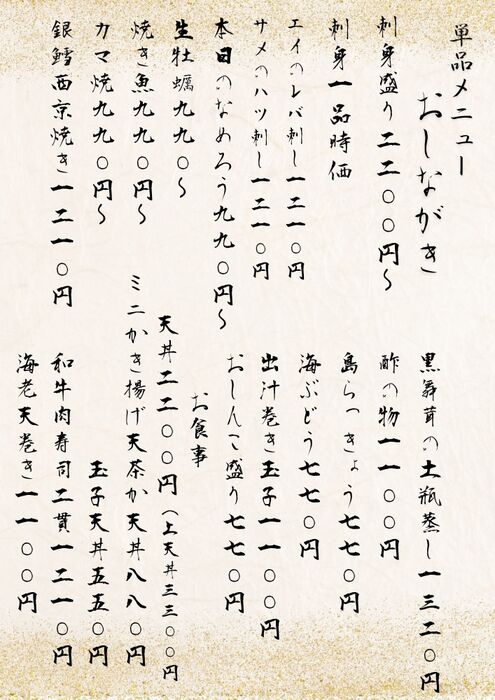 単品メニュー
おしながき
刺身盛り二二〇〇円〜
刺身一品時価
エイのレバ刺し一二一〇円
サメのハツ刺し一二一〇円
本日のなめろう九九〇円〜
生牡蠣九九〇〜
焼き魚九九〇円〜
カマ焼九九〇円〜
銀鱈西京焼き一二一〇円
黒舞茸の土瓶蒸し一三二〇円
酢の物一一〇〇円
島らっきょう七七〇円
海ぶどう七七〇円
出汁巻き玉子一一〇〇円
おしんこ盛り七七〇円
お食事
天丼二二〇〇円（上天丼三三〇〇円
ミニかき揚げ天茶か天丼八八〇円
玉子天丼五五〇円
和牛肉寿司二貫一二一〇円
海老天巻き一一〇〇円